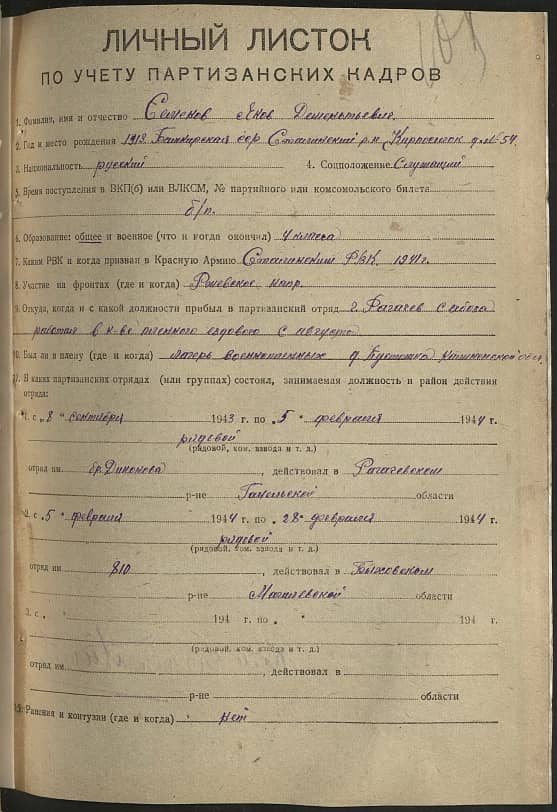 101
ЛИЧНЫЙ ЛИСТОК
ПО УЧЕТУ ПАРТИЗАНСКИХ КАДРОВ
1. Фамилия, имя и отчество Семенов Яков Дементьевич
2. Год и место рождения 1913 Башкирская сср р-н д. № 54
3. Национальность русский 4. Соцположение Служащий
5. Время поступления в ВКП(б) или ВЛКСМ, № партийного или комсомольского билета
б/п.
6. Образование: общее и военное (что и когда окончил) 4 класса
7. Каким РВК и когда призван в Красную Армию РВК 1941г.
8. Участие на фронтах (где и когда) Ржевское напр.
9. Откуда, когда и с какой должности прибыл в партизанский отряд г. Рагачев с
работал в к-ве пленного ездового с августа
10. Был ли в плену (где и когда) лагерь военнопленных д. Пустошка Калининской обл.
11. В каких партизанских отрядах (или группах) состоял, занимаемая должность и район действия
отряда:
1. с „8 “ сентября 1943 г. по „5 “ февраля 1944 г.
рядовой
(рядовой, ком. взвода и т. д.)
отряд им. , действовал в Рагачевском
р-не Гомельской области
2. с „5 “ февраля 1944 г. по „28“ февраля 1944 г.
рядовой
(рядовой, ком. взвода и т. д.)
отряд им 810 , действовал в Быховском
р-не Могилевской области
3. с „ “ 194 г. по „ “ 194 г.
(рядовой, ком. взвода и т. д.)
отряд им. , действовал в
р-не области
12. Ранения и контузии (где и когда) нет